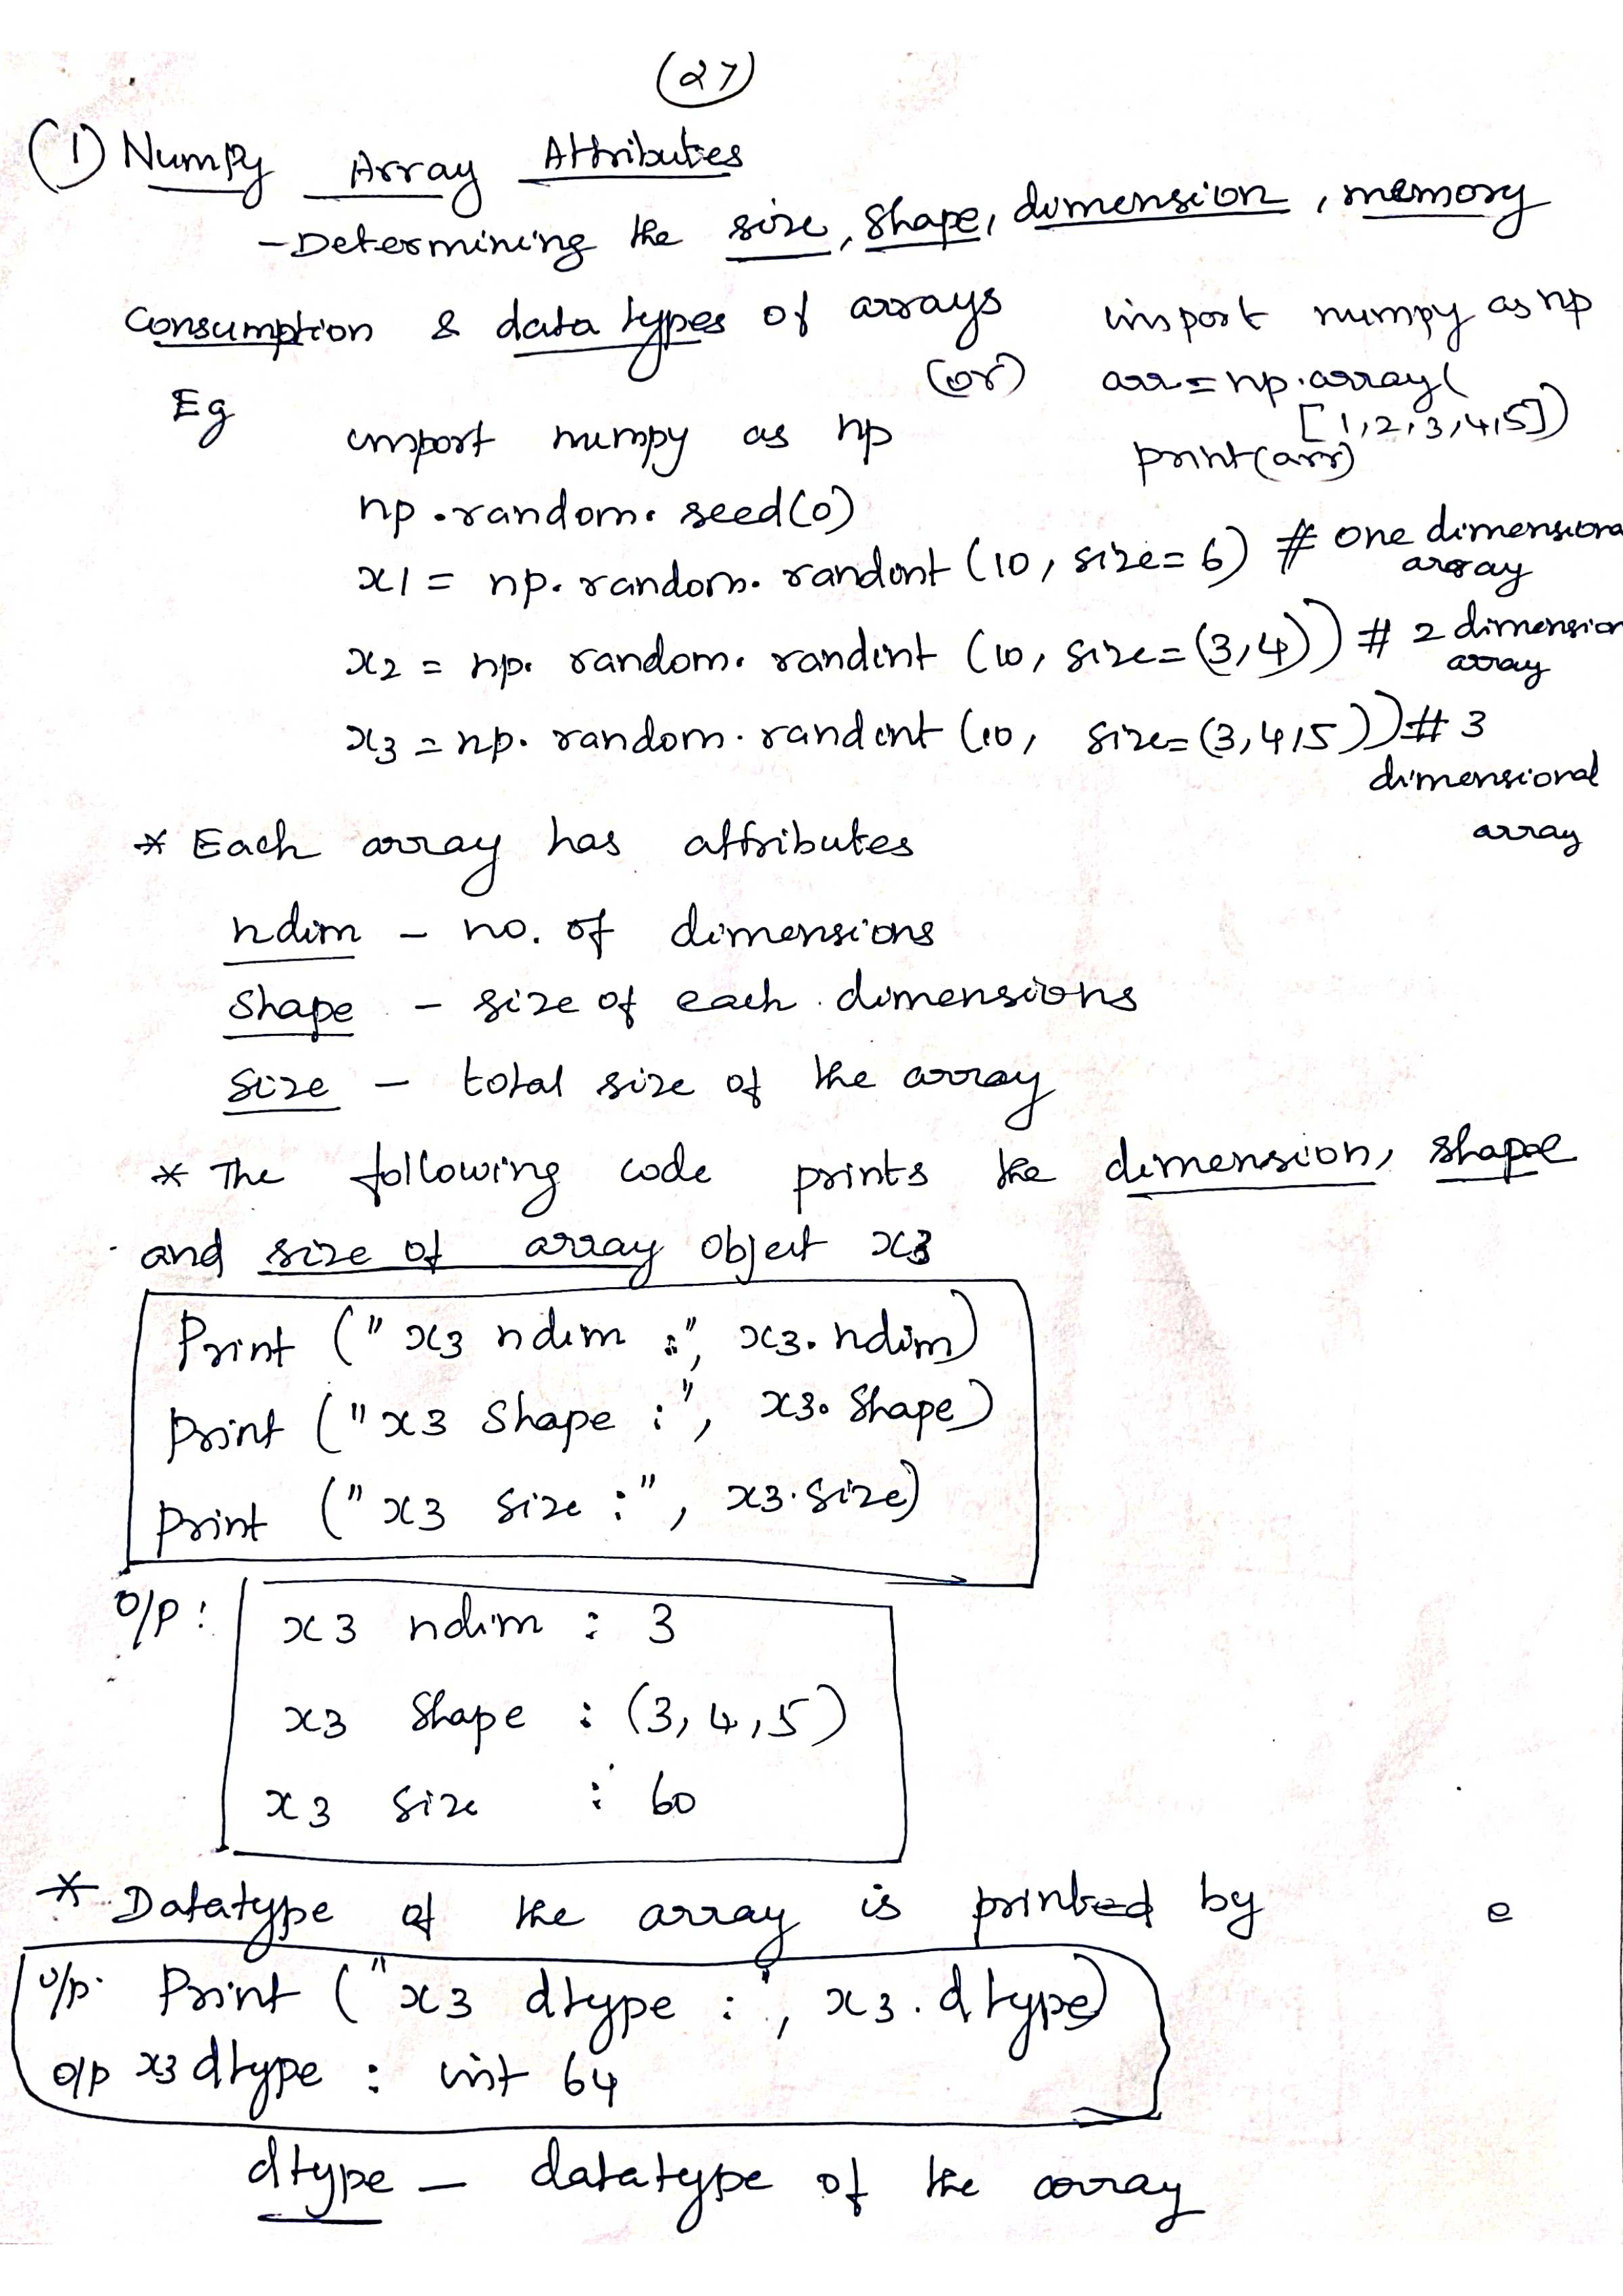 (27)
(1) Numpy Array Attributes
- Determining the size, shape, dimension, memory
consumption & data types of arrays
(or)
import numpy as np
arr = np.array(
[1,2,3,4,5])
print(arr)
Eg
import numpy as np
np.random.seed(0)
x1 = np.random.randint(10, size=6) # one dimensional
array
x2 = np.random.randint (10, size=(3,4)) # 2 dimension
array
x3 = np.random.randint (10, size=(3,4,5)) # 3
dimensional
array
* Each array has attributes
ndim - no. of dimensions
shape - size of each dimensions
size - total size of the array
* The following code prints the dimension, shape
and size of array object x3
Print ("x3 ndim :", x3.ndim)
Print ("x3 Shape :", x3.Shape)
Print ("x3 size :", x3.size)
o/p :
x3 ndim : 3
x3 Shape : (3,4,5)
x3 size : 60
* Datatype of the array is printed by
e
o/p. Print ("x3 dtype :", x3.dtype)
o/p x3 dtype : int 64
dtype - datatype of the array